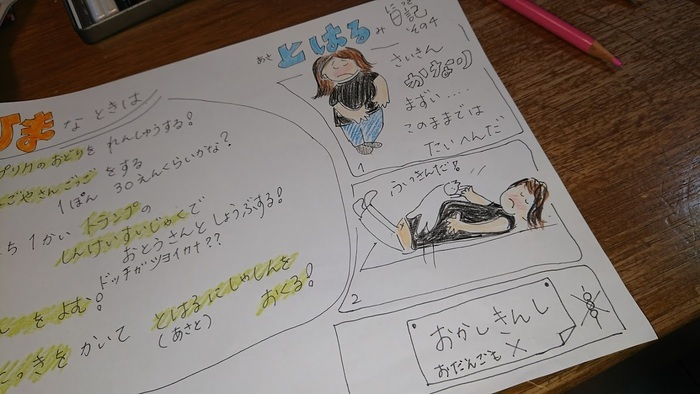 ひま な ときは
プリカのおどりを れんしゅうする!
ごやさんごっこ をする
1ぽん 30えんくらいかな?
1かい トランプの
しんけいすいじゃくで
おとうさんと しょうぶする!
ドッチがツヨイカナ??
を よむ!
を かいて とはるに しゃしんを
(あさと) おくる!
とはる
日記
その4
さいきん
かなり
まずい....
このままでは
たいへんだ
1
ふっきんだ!
2
おかしきんし
おだんごも ×